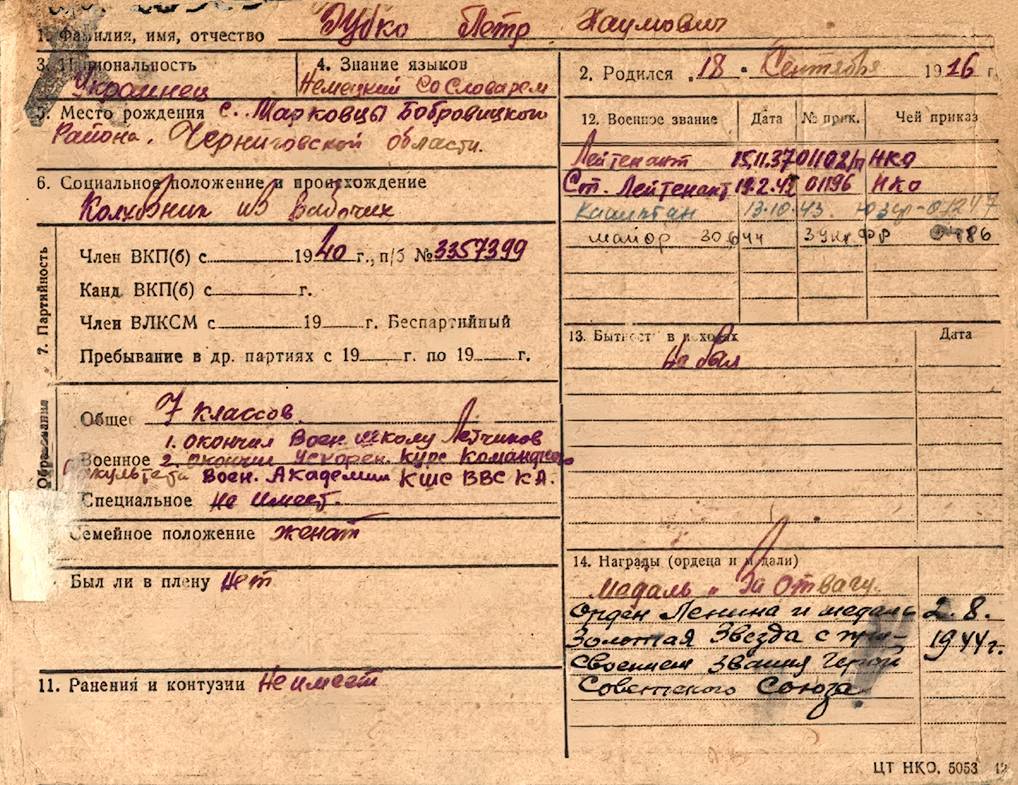 1. Фамилия, имя, отчество Дубко Петр Наумович
3. Национальность Украинец
4. Знание языков Немецкий со словарем
2. Родился "18" Сентября 1916 г.
5. Место рождения с. Марковцы Бобровицкого
Района. Черниговской области.
6. Социальное положение и происхождение
Колхозник из рабочих
7. Партийность
Член ВКП(б) с 1940 г., п/б № 3357399
Канд ВКП(б) с г.
Член ВЛКСМ с 19 г. Беспартийный
Пребывание в др. партиях с 19 г. по 19 г.
Образование
Общее 7 классов.
1. окончил Воен. школу Летчиков
Военное 2. окончил Ускорен. курс командного
факультета Воен. Академии КШС ВВС КА.
Специальное Не имеет.
Семейное положение женат
Был ли в плену Нет
11. Ранения и контузии Не имеет
12. Военное звание Дата № прик. Чей приказ
Лейтенант 15.11.37 01102/п НКО
Ст. Лейтенант 19.2.43 01196 НКО
Капитан 13.10.43. ЮЗФ-01247
майор 30 44 3 Укр. Фр 86
13. Бытность в походах Дата
Не был
14. Награды (ордена и медали)
Медаль "За Отвагу.
Орден Ленина и медаль 2. 8.
Золотая Звезда с при- 1944 г.
своением звания Герой
Советского Союза
ЦТ НКО. 5053